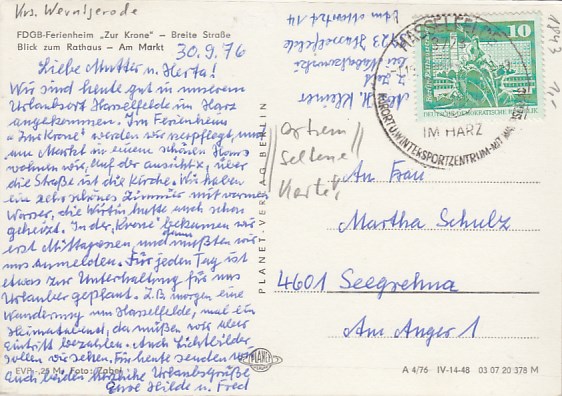 Krs. Wernigerode
FDGB-Ferienheim „Zur Krone" – Breite Straße
Blick zum Rathaus – Am Markt
30.9.76
Liebe Mutter u. Herta!
Wir sind heute gut in unserem
Urlaubsort Hasselfelde im Harz
angekommen. Im Ferienheim
"Zur Krone" werden wir verpflegt, und
am Markt in einem schönen Haus
wohnen wir, auf der aussicht, über
die Straße ist die Kirche. Wir haben
ein sehr schönes Zimmer mit warmen
Wasser, die Wirtin hatte auch schon
geheizt. In der Krone bekamen wir
erst Mittagessen und dann mußten wir
uns Anmelden. Für jeden Tag ist
etwas zur Unterhaltung für uns
Urlauber geplant. Z.B. morgen eine
Wanderung um Hasselfelde, mal ein
Heimatabend, da müßen wir aber
Eintritt bezahlen. Auch Lichtbilder
sollen wir sehen. Für heute senden wir
Euch beiden herzliche Urlaubsgrüße
Eure Hilde u. Fred
EVP -,25 M Foto: Zobel
PLANET-VERLAG BERLIN
PLANET
extrem
seltene
Karte!
H. Kleiner
3723 Hasselfelde
HASSELFELDE
3723
IM HARZ
KURORT U. WINTERSPORTZENTRUM
10
DEUTSCHE DEMOKRATISCHE REPUBLIK
1943
An Frau
Martha Schulz
4601 Seegrehna
Am Anger 1
A 4/76 IV-14-48 03 07 20 378 M